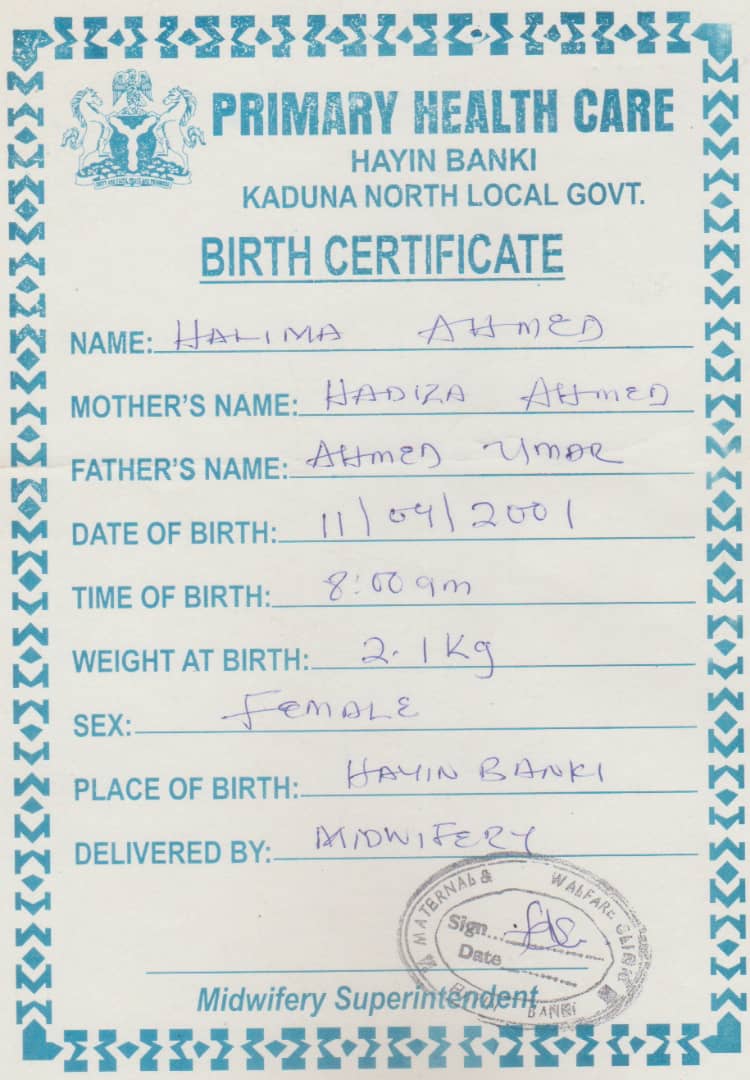 PRIMARY HEALTH CARE
HAYIN BANKI
KADUNA NORTH LOCAL GOVT.
BIRTH CERTIFICATE
NAME: HALIMA AHMED
MOTHER'S NAME: HADIZA AHMED
FATHER'S NAME: AHMED UMAR
DATE OF BIRTH: 11/04/2001
TIME OF BIRTH: 8:00am
WEIGHT AT BIRTH: 2.1Kg
SEX: FEMALE
PLACE OF BIRTH: HAYIN BANKI
DELIVERED BY: MIDWIFERY
MATERNAL & WALFARE CLINIC
Sign
Date
BANKI
Midwifery Superintendent